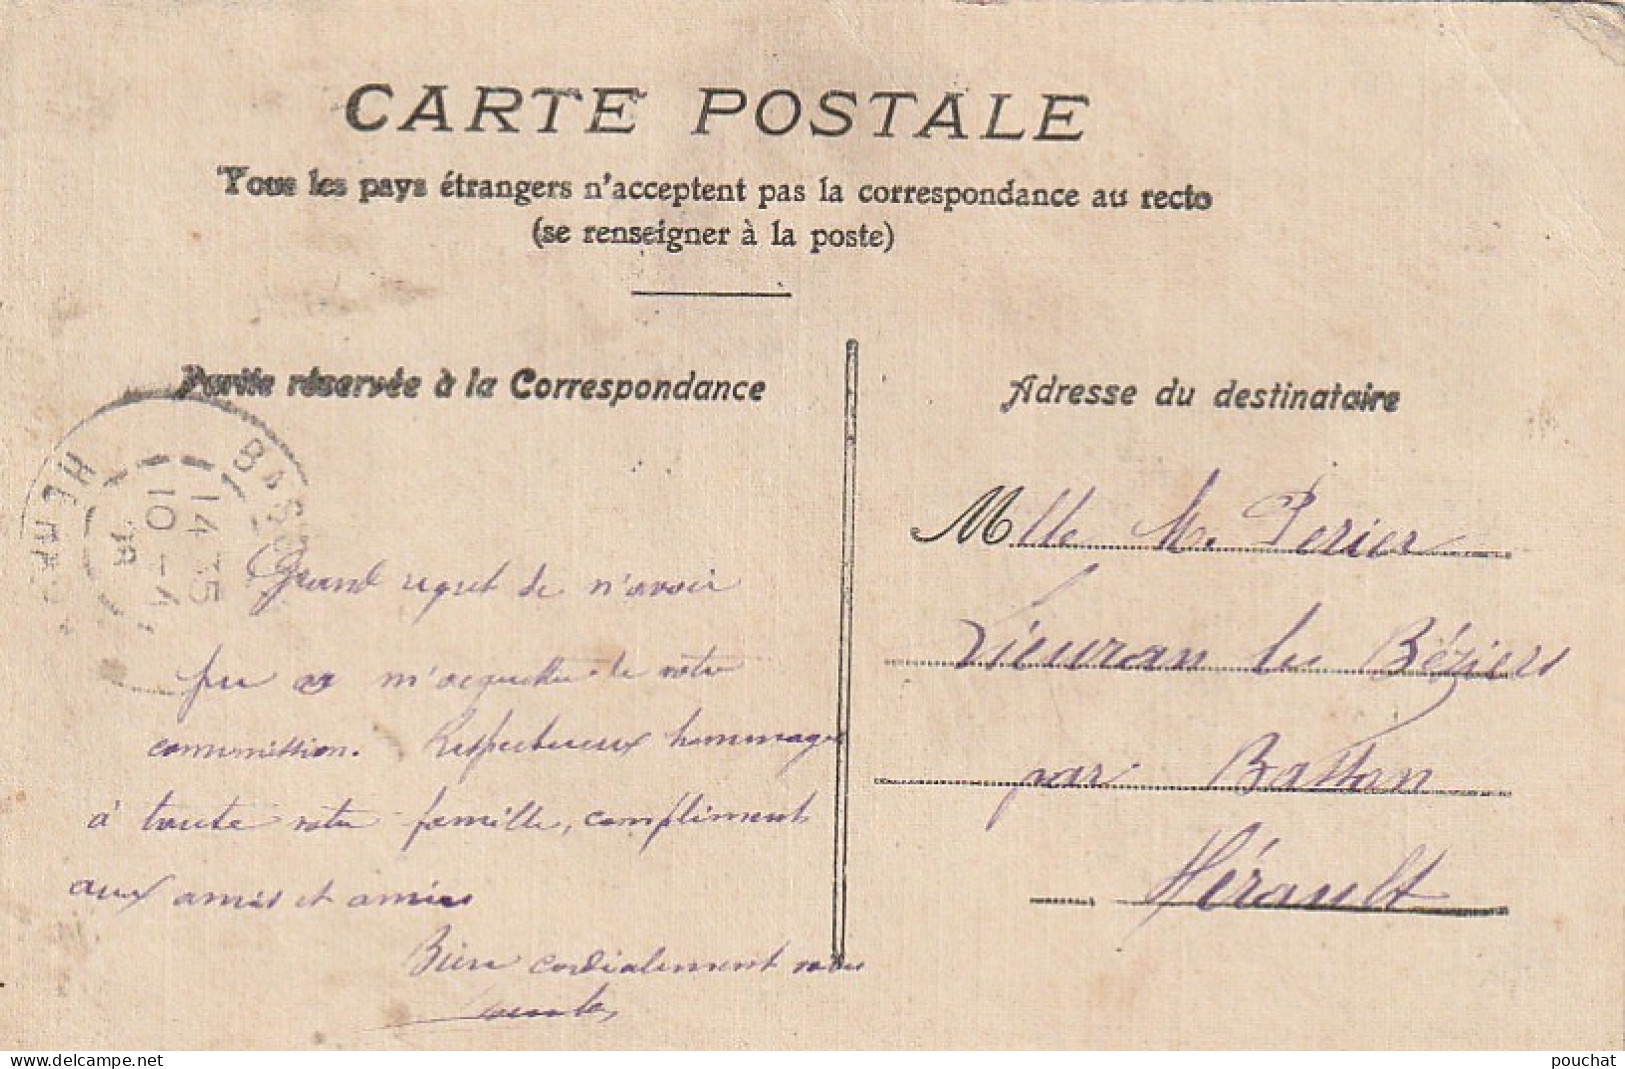 CARTE POSTALE
Tous les pays étrangers n'acceptent pas la correspondance au recto
(se renseigner à la poste)
Partie réservée à la Correspondance
Grand regret de n'avoir
pu m'acquitter de votre
commission. Respectueux hommages
à toute votre famille, compliments
aux amis et amies
Bien cordialement votre
Adresse du destinataire
Mlle M. Perier
Lieuran les Béziers
par Bassan
Hérault
BASS
14 35
10 - 4
HERAU
delcampe.net
pouchat